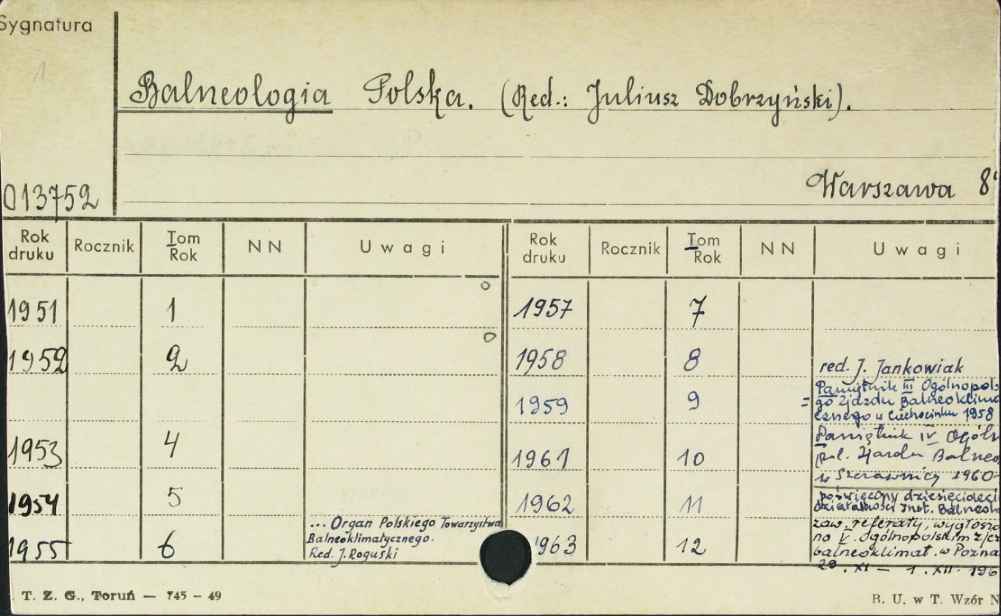 Sygnatura
1
Balneologia Polska. (Red.: Juliusz Dobrzyński).
013752
Warszawa 8°
Rok druku Rocznik Tom Rok NN Uwagi Rok druku Rocznik Tom Rok NN Uwagi
1951 1 1957 7
1952 2 1958 8 red. J. Jankowiak
1959 9 = Pamiętnik III Ogólnopols
go Zjazdu Balneoklima
cznego w Ciechocinku 1958
1953 4 1961 10 Pamiętnik IV Ogóln
pol. Zjazdu Balneo
w Szczawnicy 1960
1954 5 1962 11 poświęcony dziesięcioleci
działalności Inst. Balneok
1955 6 ... Organ Polskiego Towarzystwa
Balneoklimatycznego.
Red. J. Roguski
1963 12 zaw. referaty, wygłosz
na V. Ogólnopolskim zjeź
balneoklimat. w Pozna
29. XI - 1. XII. 196
T. Z. G., Toruń — 745 - 49
B. U. w T. Wzór N